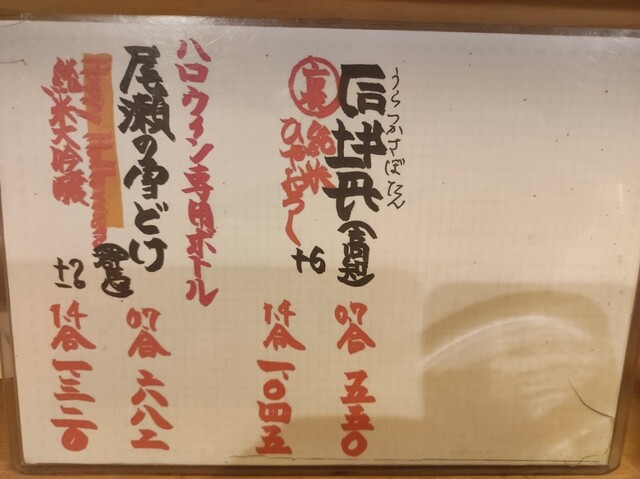 うらつかさぼたん
司牡丹(高知)
裏 純米
ひやおろし +6
0.7合 五五〇
1.4合 1.〇四五
ハロウィン専用ボトル
尾瀬の雪どけ(群馬)
純米大吟醸
0.7合 六八二
1.4合 1.三二〇